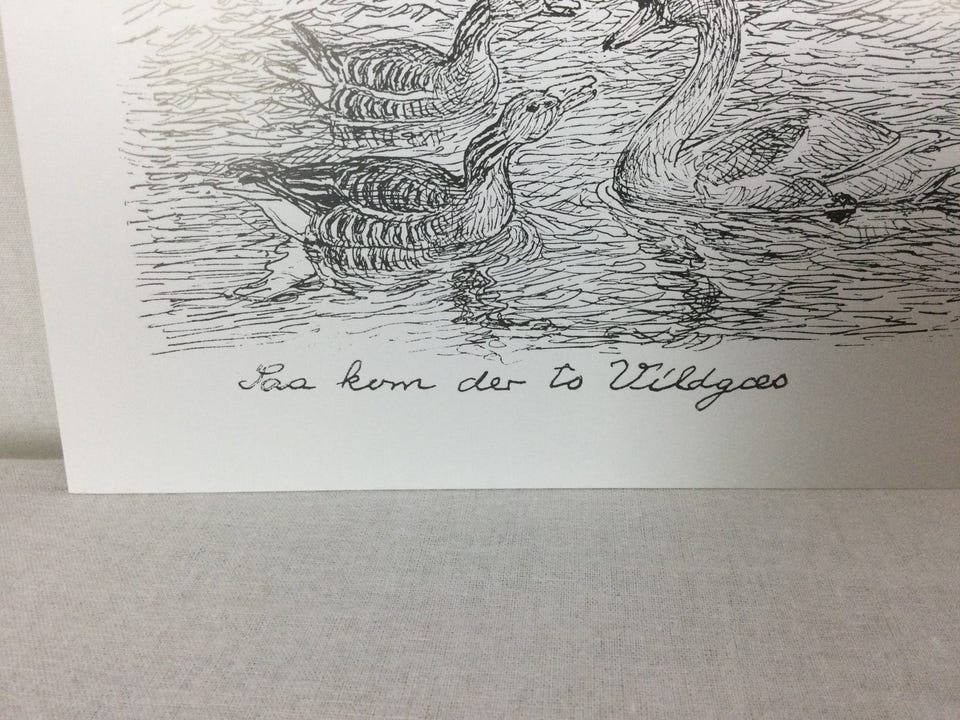 Saa kom der to Vildgæs